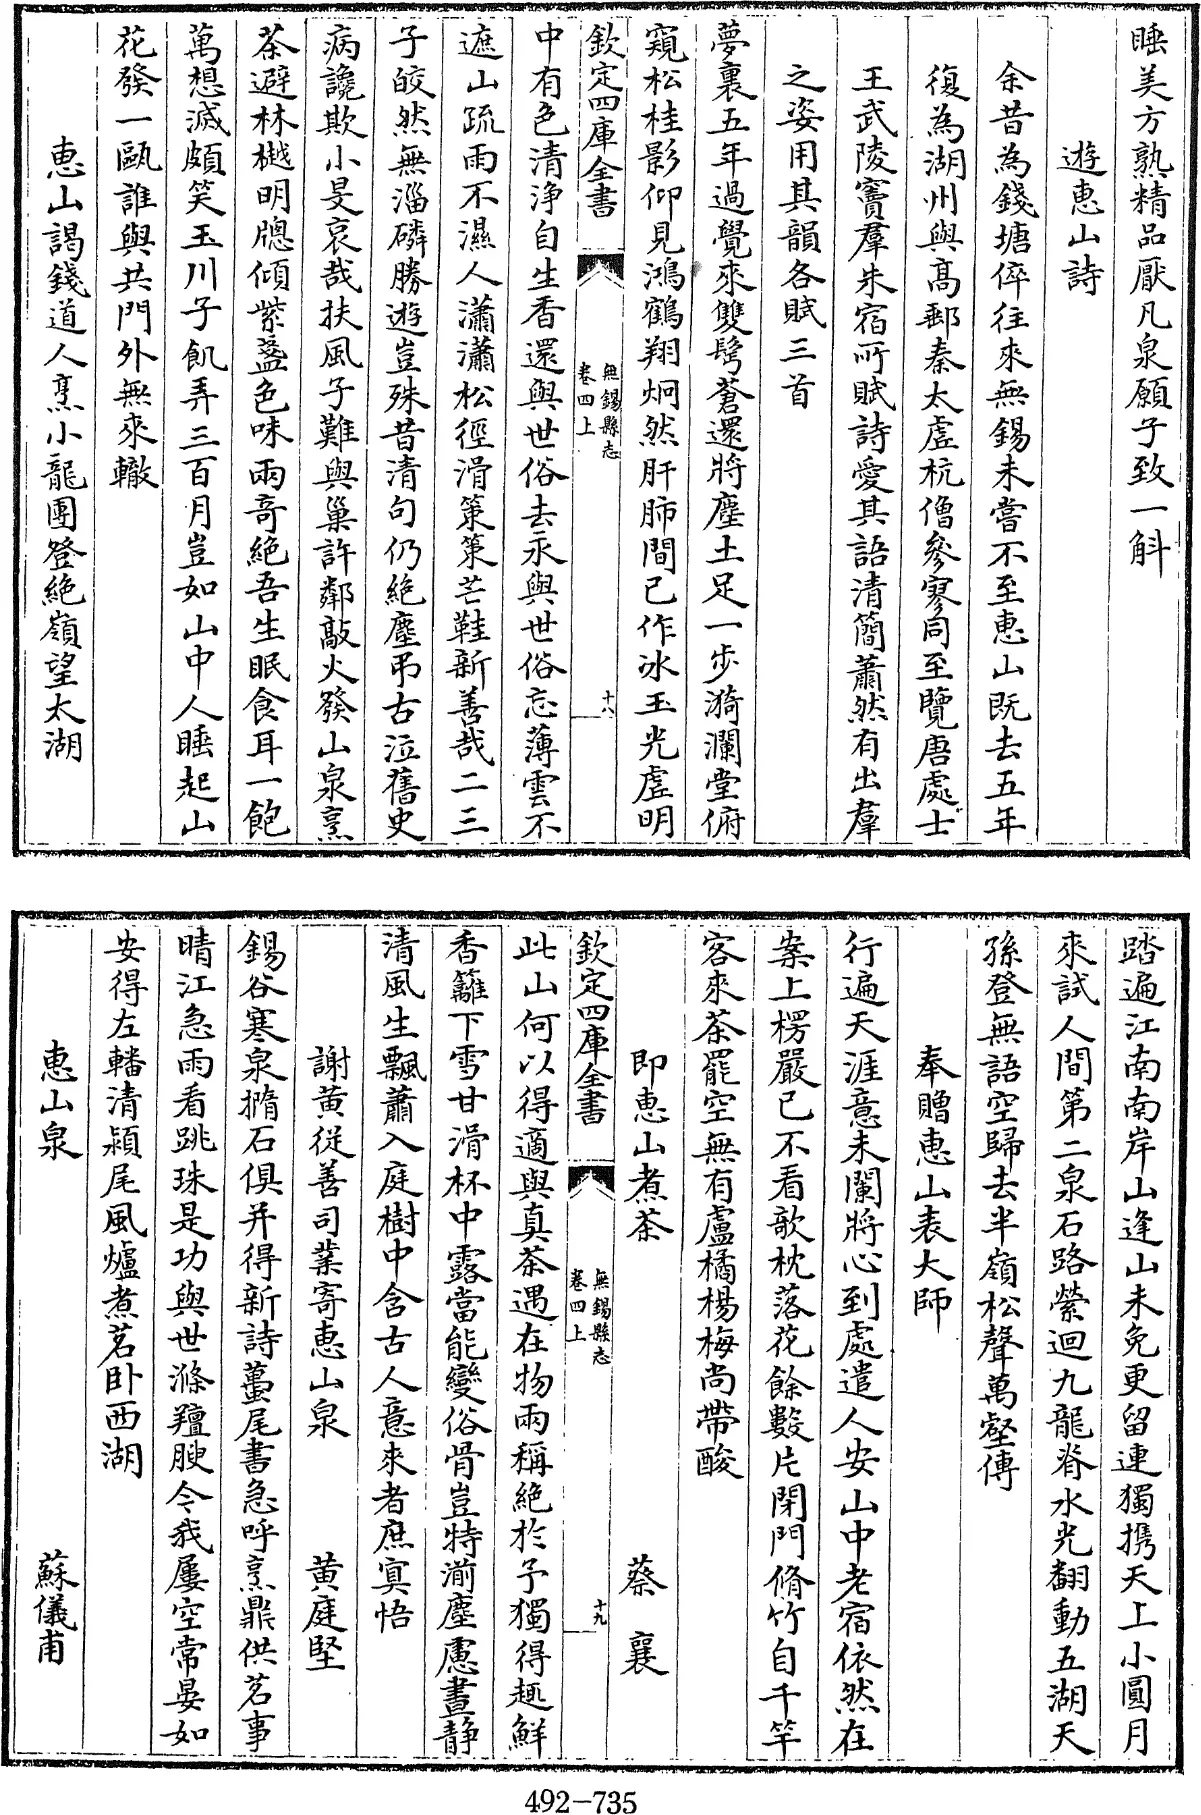 睡美方熟精品厭凡泉願子致一斛
遊惠山詩
余昔為錢塘倅往來無錫未嘗不至惠山既去五年
復為湖州與髙郵秦太虛杭僧參寥同至覽唐處士
王武陵竇羣朱宿所賦詩愛其語清簡蕭然有出羣
之姿用其韻各賦三首
夢裏五年過覺來雙鬢蒼還將塵土足一步漪瀾堂俯
窺松桂影仰見鴻鶴翔炯然肝肺間已作冰玉光虛明
欽定四庫全書
無錫縣志
卷四上
十八
中有色清浄自生香還與世俗去永與世俗忘薄雲不
遮山疏雨不濕人瀟瀟松徑滑策策芒鞋新善哉二三
子皎然無淄磷勝遊豈殊昔清句仍絶塵弔古泣舊史
病讒欺小旻哀哉扶風子難與巢許鄰敲火發山泉烹
茶避林樾明牕傾紫盞色味兩奇絶吾生眠食耳一飽
萬想滅頗笑玉川子飢弄三百月豈如山中人睡起山
花發一甌誰與共門外無來轍
惠山謁錢道人烹小龍團登絶嶺望太湖
踏遍江南南岸山逢山未免更留連獨携天上小圓月
來試人間第二泉石路縈迴九龍脊水光翻動五湖天
孫登無語空歸去半嶺松聲萬壑傳
奉贈惠山表大師
行遍天涯意未闌將心到處遣人安山中老宿依然在
案上楞嚴已不看歌枕落花餘數片閉門脩竹自千竿
客來茶罷空無有盧橘楊梅尚帶酸
即惠山煮茶 蔡襄
欽定四庫全書
無錫縣志
卷四上
十九
此山何以得適與真茶遇在物兩稱絶於子獨得趣鮮
香籬下雪甘滑杯中露當能變俗骨豈特湔塵慮晝静
清風生飄蕭入庭樹中含古人意來者庶寞悟
謝黄從善司業寄惠山泉 黄庭堅
錫谷寒泉撱石俱并得新詩蠆尾書急呼烹鼎供茗事
晴江急雨看跳珠是功與世滌羶腴令我屢空常晏如
安得左轓清潁尾風爐煮茗卧西湖
惠山泉 蘇儀甫
492-735